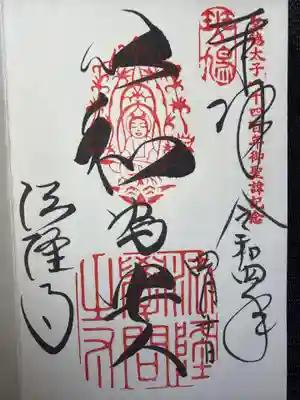 聖徳太子一千四百年御聖諱記念
斑鳩
奉拝
令和四年
四月廿日
以和為貴
法隆寺
法隆學問之寺